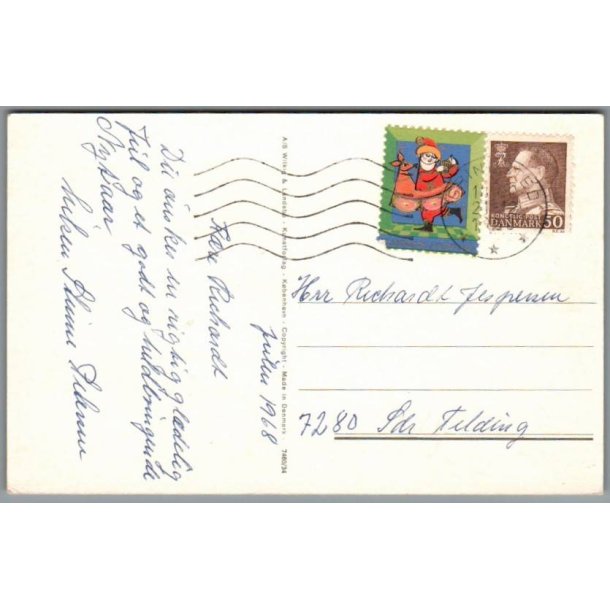 julen 1968
Kære Richardt
Du ønskes en rigtig glædelig
Jul og et godt og velbringende
Nytaar
hilsen Stinne
A/S Wilkig & Landsbo - Kunstforlag - København - Copyright - Made in Denmark 7460/34
KONGELIG POST
DANMARK 50
Hrr Richardt Jespersen
7280 Sdr Felding